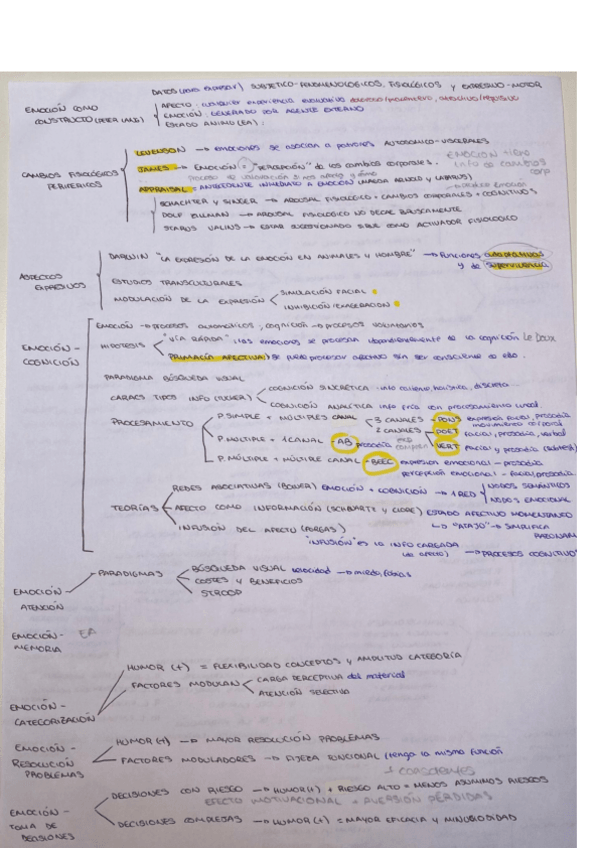 DATOS (para expresar) SUBJETICO-FENOMENOLÓGICOS, FISIOLÓGICOS Y EXPRESIVO-MOTOR
EMOCIÓN COMO CONSTRUCTO
AFECTO: cualquier experiencia
EMOCIÓN: GENERADO POR AGENTE EXTERNO
ESTADO ÁNIMO (EA):
CAMBIOS FISIOLÓGICOS PERIFÉRICOS
LEVENSON → emociones se asocian a patrones AUTONÓMICO-VISCERALES
JAMES → EMOCIÓN = "PERCEPCIÓN" de los cambios corporales.
EMOCIÓN tiene info de cambios corp
APPRAISAL = ANTECEDENTE INMEDIATO A EMOCIÓN (MAGDA ARNOLD Y LAZARUS)
SCHACHTER Y SINGER → AROUSAL FISIOLÓGICO + CAMBIOS CORPORALES + COGNITIVOS
DOLF ZILLMAN → AROUSAL FISIOLÓGICO NO DECAE BRUSCAMENTE
STUARS VALINS → ESTAR SUGESTIONADO SIRVE COMO ACTIVADOR FISIOLÓGICO
ASPECTOS EXPRESIVOS
DARWIN "LA EXPRESIÓN DE LA EMOCIÓN EN ANIMALES Y HOMBRE" → FUNCIONES adaptativas
y de supervivencia
ESTUDIOS TRANSCULTURALES
MODULACIÓN DE LA EXPRESIÓN
SIMULACIÓN FACIAL
INHIBICIÓN/EXAGERACIÓN
EMOCIÓN - COGNICIÓN
EMOCIÓN → procesos automáticos, cognición → procesos voluntarios
HIPÓTESIS
"VÍA RÁPIDA": las emociones se procesan independientemente de la cognición Le Doux
PRIMACÍA AFECTIVA: se puede procesar afectado sin ser consciente de ello.
PARADIGMA BÚSQUEDA VISUAL
CARACS TIPOS INFO (BUCK)
COGNICIÓN SINCRÉTICA - info caliente, holística, directa
COGNICIÓN ANALÍTICA info fría con procesamiento lineal
PROCESAMIENTO
P. SIMPLE + MÚLTIPLES CANAL
3 CANALES - PONS expresión facial, prosodia movimiento corporal
2 CANALES - POET facial, prosodia, verbal
P. MÚLTIPLE + 1 CANAL - AB prosodia
VERT facial y prosodia
P. MÚLTIPLE + MÚLTIPLE CANAL - BEEC expresión emocional - prosodia
percepción emocional - facial, prosodia.
TEORÍAS
REDES ASOCIATIVAS (BOWER) EMOCIÓN + COGNICIÓN → 1 RED
NODOS SEMÁNTICOS
NODOS EMOCIONAL
AFECTO COMO INFORMACIÓN (SCHWARTZ Y CLORE) ESTADO AFECTIVO MOMENTÁNEO
↳ "ATAJO" → SIMPLIFICA RAZONAM
INFUSIÓN DEL AFECTO (FORGAS)
"INFUSIÓN" ES LA INFO CARGADA (de afecto) → PROCESOS COGNITIVO
EMOCIÓN - ATENCIÓN
PARADIGMAS
BÚSQUEDA VISUAL velocidad → miedo, fobias
COSTES Y BENEFICIOS
STROOP
EMOCIÓN - MEMORIA
EA
EMOCIÓN - CATEGORIZACIÓN
HUMOR (+) = FLEXIBILIDAD CONCEPTOS Y AMPLITUD CATEGORÍA
FACTORES MODULAN
CARGA PERCEPTIVA del material
ATENCIÓN SELECTIVA
EMOCIÓN - RESOLUCIÓN PROBLEMAS
HUMOR (+) → MAYOR RESOLUCIÓN PROBLEMAS
FACTORES MODULADORES → FIJEZA FUNCIONAL (tenga la misma función
EMOCIÓN - TOMA DE DECISIONES
DECISIONES CON RIESGO → HUMOR (+) + RIESGO ALTO = MENOS ASUMIMOS RIESGOS
EFECTO MOTIVACIONAL + AVERSIÓN PÉRDIDAS
DECISIONES COMPLEJAS → HUMOR (+) = MAYOR EFICACIA Y MINUCIOSIDAD